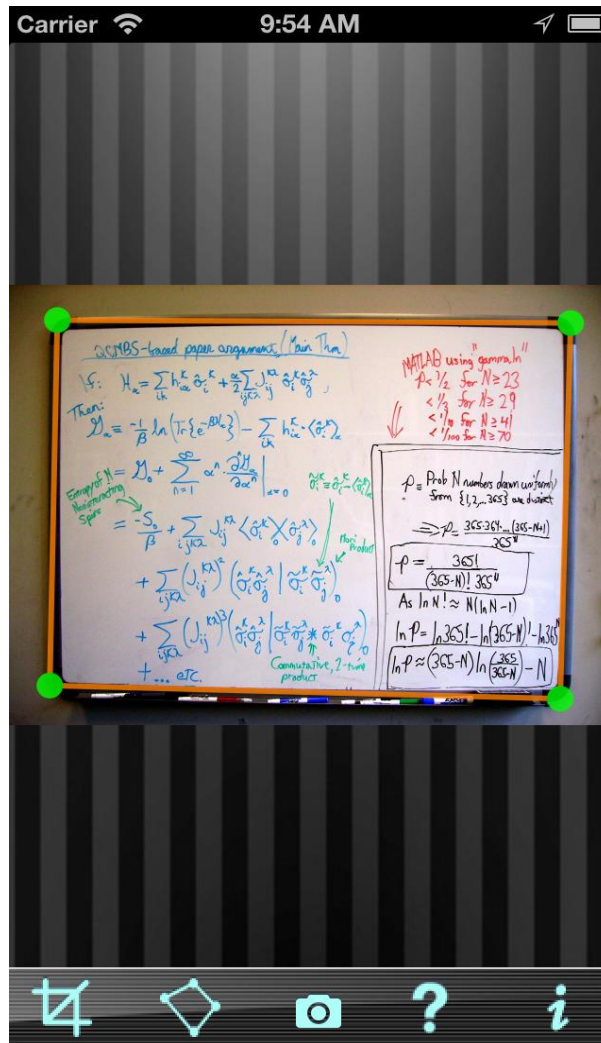 Carrier 9:54 AM
QCMBS-based paper argument, (Main Thm)
If: H_α = Σ_{ik} h_{iα}^κ σ̂_i^κ + α/2 Σ_{ijκλ} J_{ij}^{κλ} σ̂_i^κ σ̂_j^λ ,
Then:
G_α = -1/β ln(Tr{e^{-βH_α}}) - Σ_{ik} h_{iα}^κ · ⟨σ̂_i^κ⟩_α
= G_0 + Σ_{n=1}^∞ α^n · ∂^n G_α/∂α^n |_{α=0}
Entropy of N
Noninteracting
Spins
= -S_0/β + Σ_{ijκλ} J_{ij}^{κλ} ⟨σ̂_i^κ⟩_0 ⟨σ̂_j^λ⟩_0
Mori
Product
+ Σ_{ijκλ} (J_{ij}^{κλ})^2 (σ̃_i^κ σ̃_j^λ | σ̃_i^κ σ̃_j^λ)_0
+ Σ_{ijκλ} (J_{ij}^{κλ})^3 (σ̃_i^κ σ̃_j^λ | σ̃_i^κ σ̃_j^λ * σ̃_i^κ σ̃_j^λ)_0
Commutative, 2-time
product
+ ... etc.
MATLAB using "gammaln"
P < 1/2 for N ≥ 23
< 1/3 for N ≥ 29
< 1/10 for N ≥ 41
< 1/100 for N ≥ 70
P ≡ Prob N numbers drawn uniformly
from {1,2,...365} are distinct
⇒ P = 365·364·...(365-N+1) / 365^N
P = 365! / (365-N)! 365^N
As ln N! ≈ N(ln N - 1)
ln P = ln 365! - ln(365-N)! - ln 365^N
ln P ≈ (365-N) ln(365/(365-N)) - N
?
i